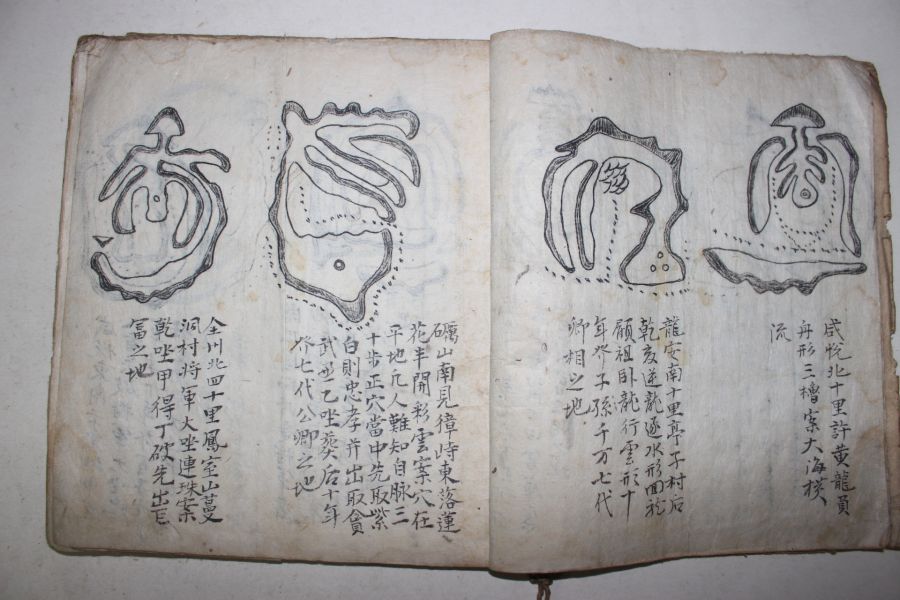 咸悅北十里許黃龍負
舟形三櫓案大海橫
流
龍安南十里亭子村后
乾亥逆龍逐水形回龍
顧祖卧龍行雲形十
年后子孫千万七代
卿相之地
礪山南見獐峙東落蓮
花半開彩雲案穴在
平地凡人難知自脉三
十步正穴當中先取紫
白則忠孝并出取貪
武丑乙坐葬后十年
七代公卿之地
全州北四十里鳳室山蔓
洞村將軍大坐連珠案
乾坐甲得丁破先出巨
富之地